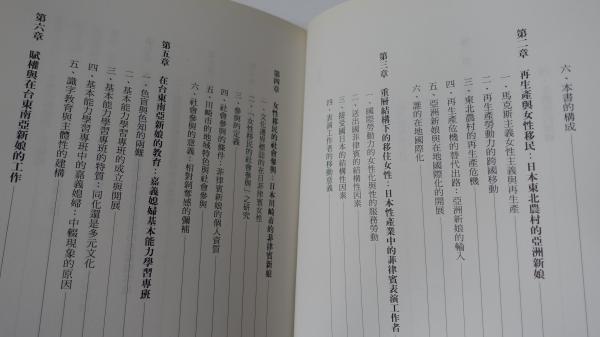 六．本書的構成
第二章　再生產與女性移民：日本東北農村的亞洲新娘
一．馬克斯主義女性主義與再生產
二．再生產勞動力的跨國移動
三．東北農村的再生產危機
四．再生產危機的替代出路：亞洲新娘的輸入
五．亞洲新娘與在地國際化的開展
六．誰的在地國際化
第三章　重層結構下的移住女性：日本性產業中的菲律賓表演工作者
一．國際勞動力的女性化與性的服務勞動
二．送出國菲律賓的結構性因素
三．接受國日本的結構性因素
四．表演工作者的移動意義
第四章　女性移民的社會參與：日本川崎市的菲律賓新娘
一．文化邊界標誌的在日菲律賓女性
二．「女性移民的社會參與」之研究
三．參與的定義
四．社會參與的條件：菲律賓新娘的個人資質
五．川崎市的地域特色與社會參與
六．社會參與的意義：相對剝奪感的彌補
第五章　在台東南亞新娘的教育：嘉義媳婦基本能力學習專班
一．色盲與色知的兩難
二．基本能力學習專班的成立與開展
三．基本能力學習專班的特質：同化還是多元文化
四．基本能力學習專班中的嘉義媳婦：中輟現象的原因
五．識字教育與主體性的建構
第六章　賦權與在台東南亞新娘的工作